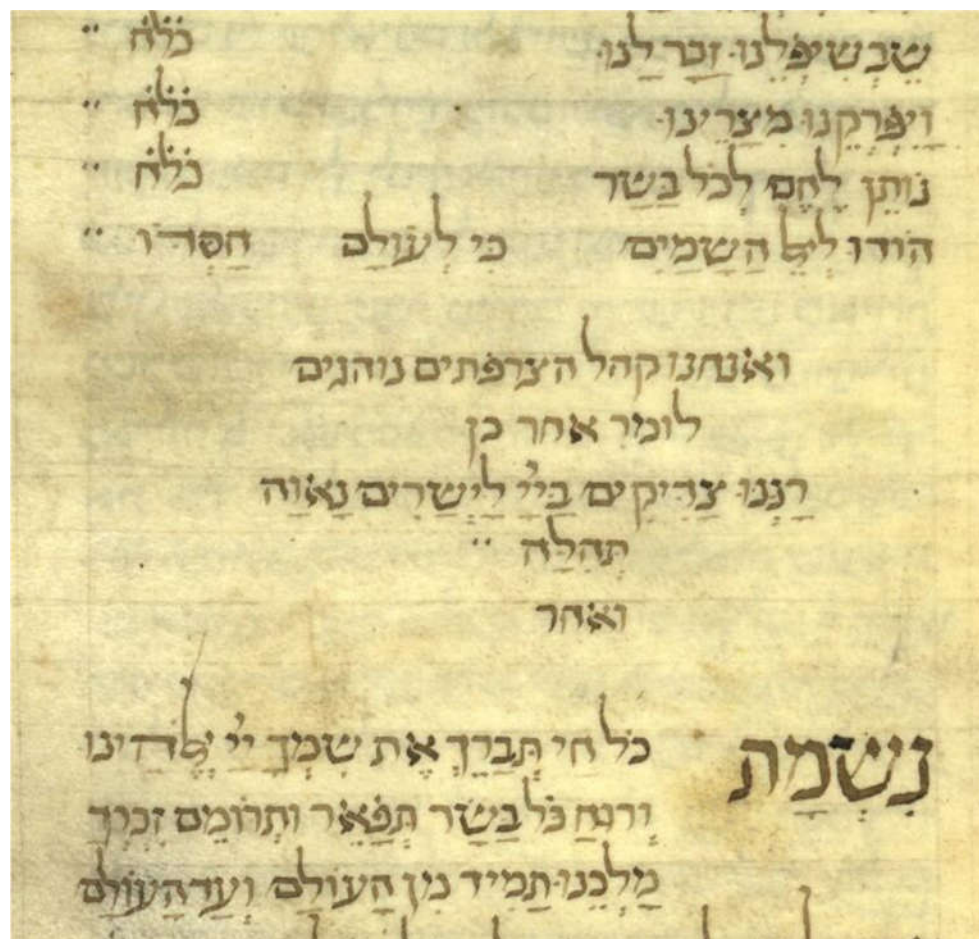 שֵבְשִיפְלֵנוּ· זָכַר לָנוּ· כׄלׄחׄ ··
וַיִפְרְקֵנוּ מִצָרֵינוּ· כׄלׄחׄ ··
נוֹתֵן לֶחֶם לְכֹל בָשָר כׄלׄחׄ ··
הוֹדוּ לְאֵל הַשָמַיִם כִי לְעוֹלָם חַסְדוֹ ··
ואנחנו קהל הצרפתים נוהגים
לומר אחר כן
רַנְנוּ צַדִיקִים בַייָ לַיְשָרִים נָאוָה
תְהִלָה ··
ואחר
נִשְמַת כֹל חַי תְבָרֵך אֶת שִמְךָ יְיָ אֱלֹהֵינוּ
וְרוּחַ כֹל בָשָר תְפָאֵר וּתְרוֹמֵם זִכְרְךָ
מַלְכֵנוּ תָמִיד מִן הָעוֹלָם וְעַד הָעוֹלָם